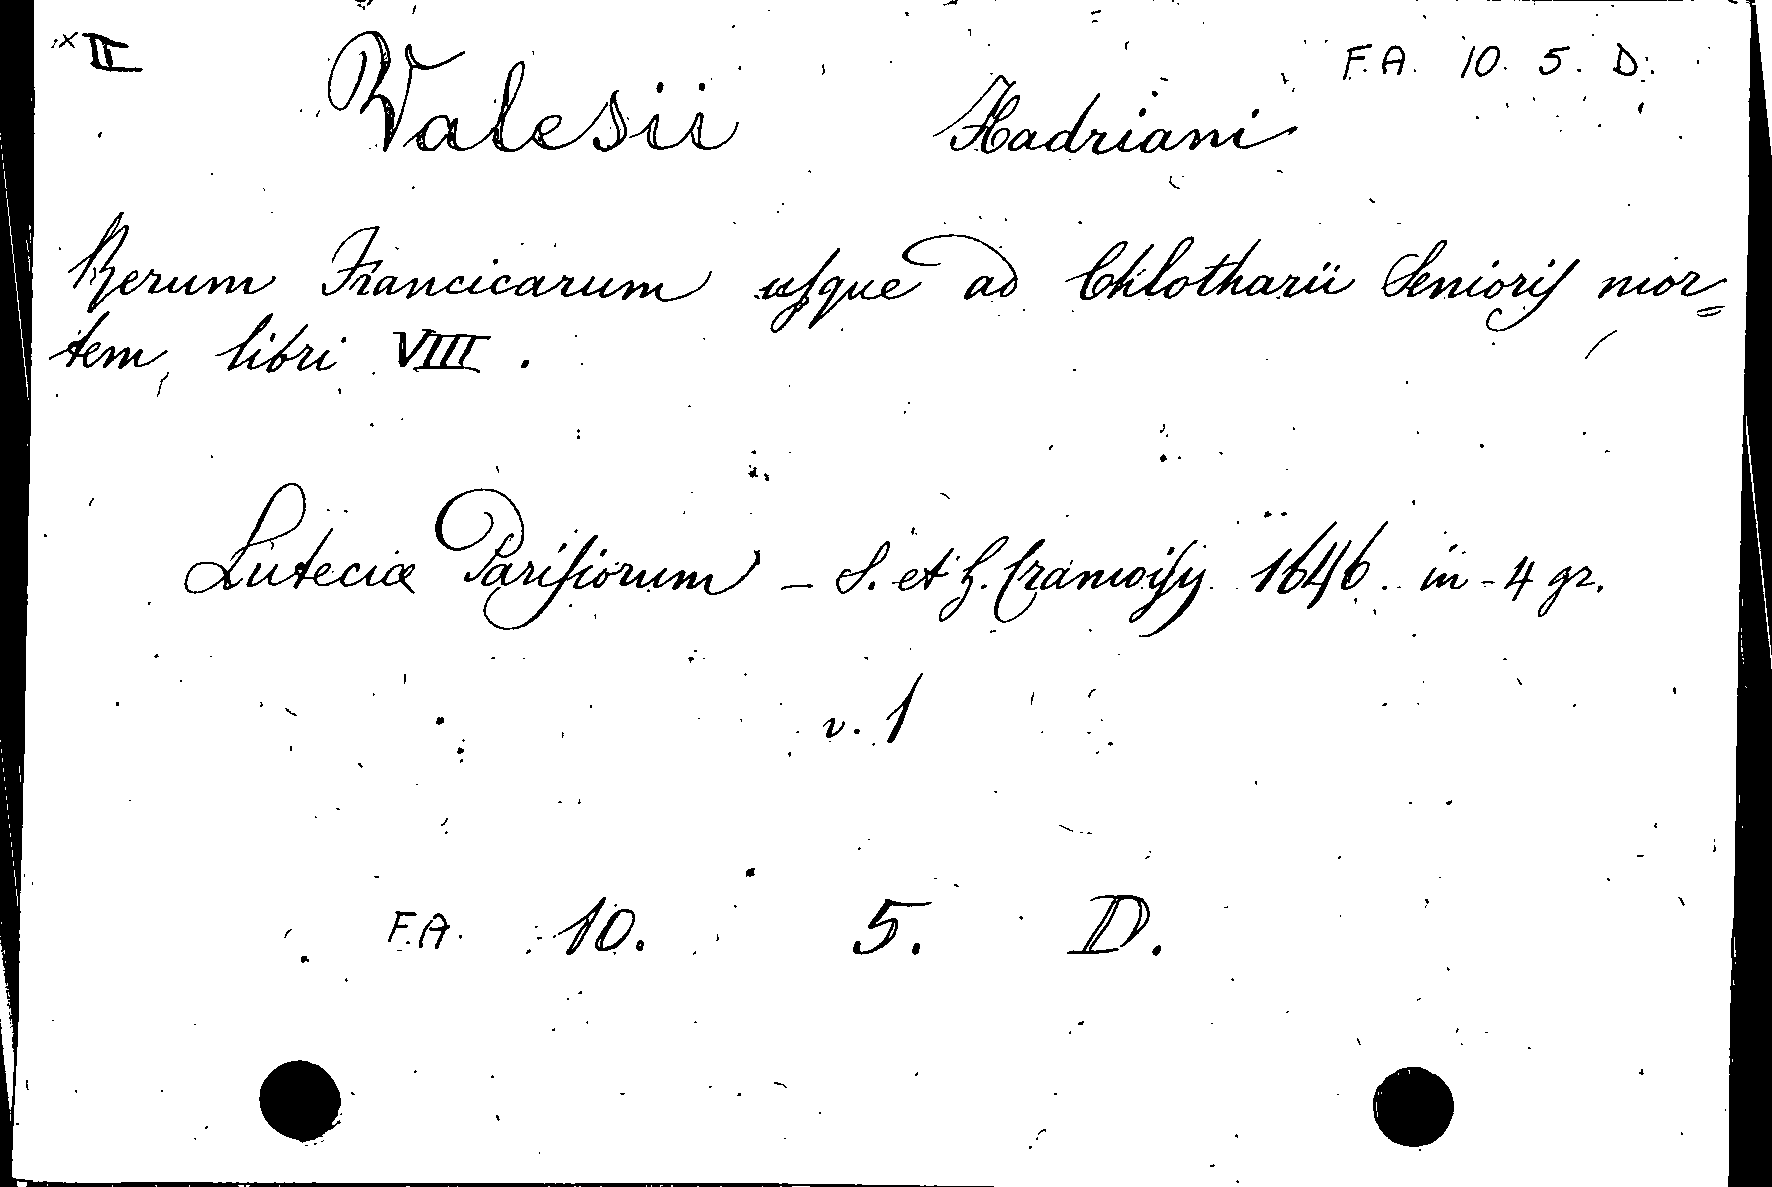 x II
F.A. 10. 5. D.
Valesii Hadriani
Rerum Francicarum usque ad Chlotharii Senioris mor=
tem, libri VIII.
Luteciæ Parisiorum - S. et G. Cramoisy 1646. in-4 gr.
v. 1
F.A. 10. 5. D.